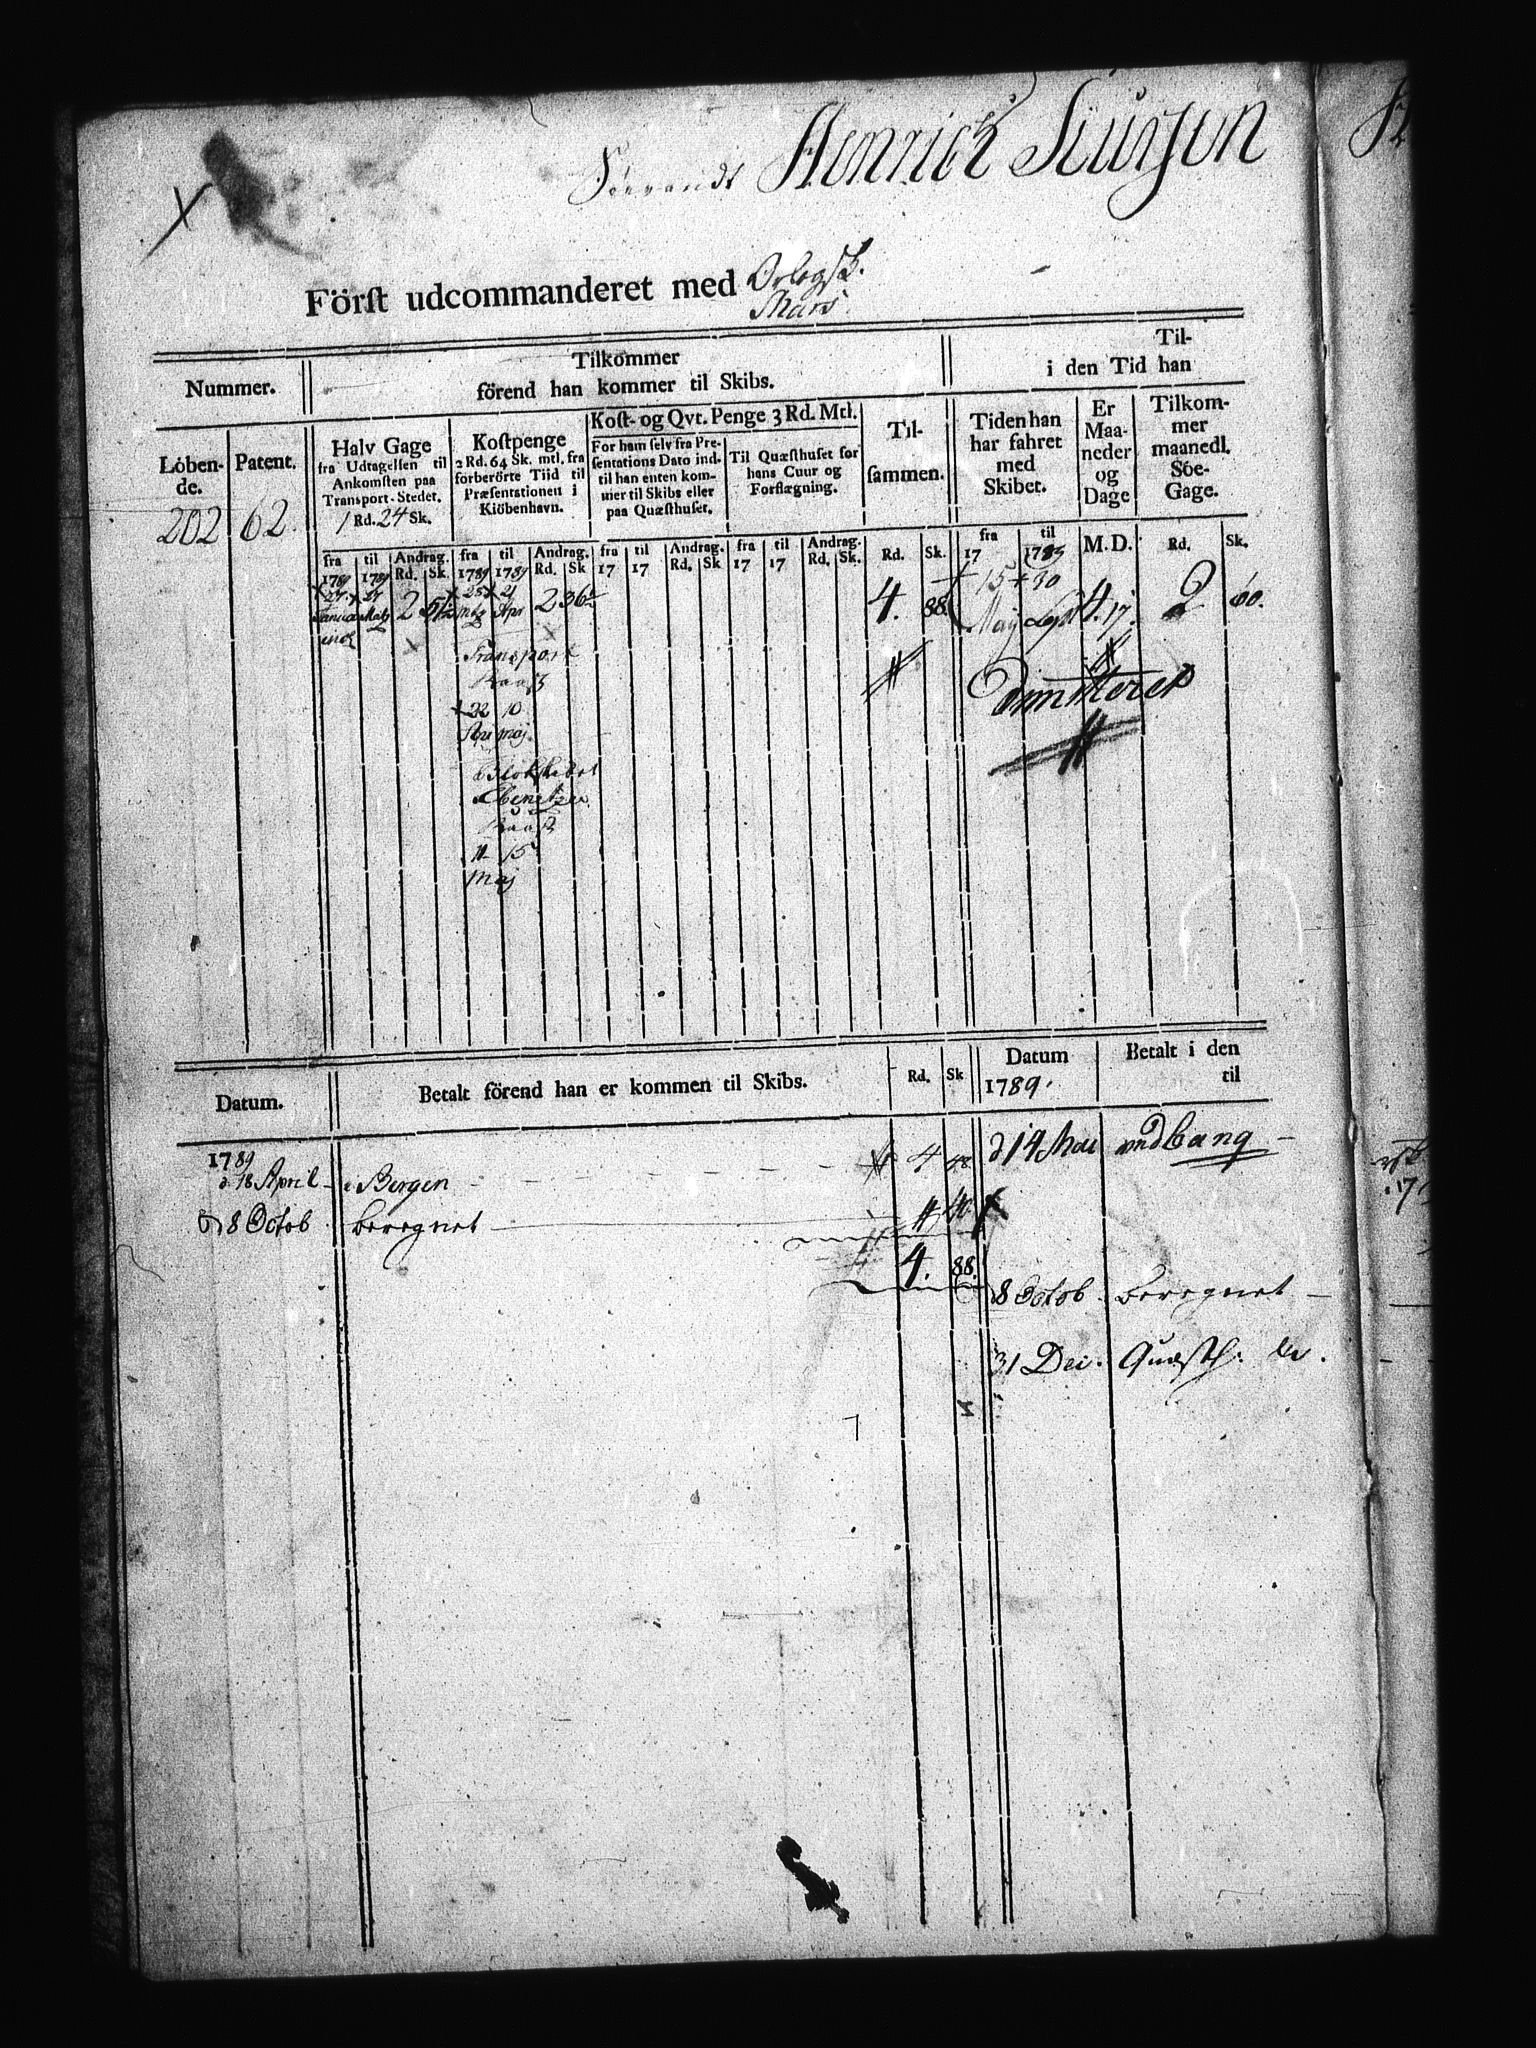 Henrich Siursen
Först udcommanderet med Orlogsk.
Mars.
Nummer.
Tilkommer
förend han kommer til Skibs.
Til-
i den Tid han
Löben-
de.
Patent.
Halv Gage
fra Udtagelsen til
Ankomsten paa
Transport-Stedet.
1 Rd. 24 Sk.
Kostpenge
2 Rd. 64 Sk. mtl. fra
forberörte Tiid til
Præsentationen i
Kiöbenhavn.
Kost- og Qvt. Penge 3 Rd. Mtl.
For ham selv fra Pre-
sentations Dato ind-
til han enten kom-
mer til Skibs eller
paa Quæsthuset.
Til Quæsthuset for
hans Cuur og
Forflægning.
Til-
sammen.
Tiden han
har fahret
med
Skibet.
Er
Maa-
neder
og
Dage
Tilkom-
mer
maanedl.
Söe-
Gage.
fra til Andrag. fra til Andrag. fra til Andrag. fra til Andrag. Rd. Sk. fra til M. D. Rd. Sk.
1789 1789 Rd. Sk 1789 1789 Rd. Sk 17 17 Rd. Sk 17 17 Rd. Sk. 17 1789
202 62.
27 27 2 51½ 28 21 2 36½ 4. 88. 15 30 4. 17. 2 60.
Januar Martz Mtz Apr Maÿ Sept
Transport
22 10
Apr maj
Dimitteret
Blokskibet
Ebenetzer
11 15
Maj
Datum.
Betalt förend han er kommen til Skibs.
Rd. Sk
Datum
1789.
Betalt i den
til
1789
d 18 April i Bergen 4 48
d 14 Mai
d 8 Octob beregnet 40
4. 88.
8 Octob beregnet
31 Dec. Quæsth: